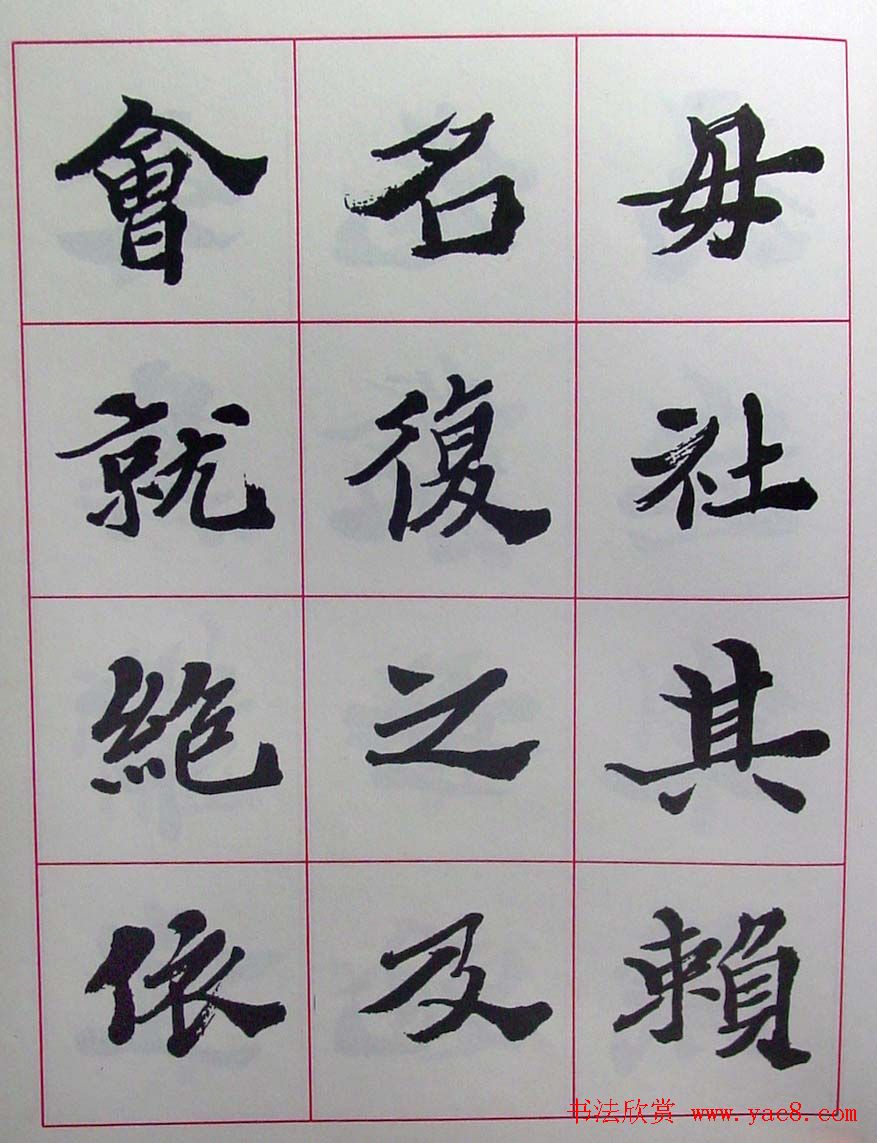 毋社其賴
名復之及
會就絶依
书法欣赏 www.yac8.com